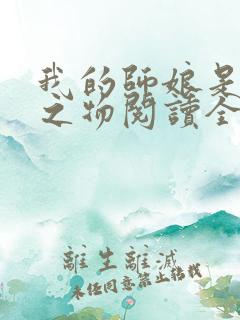 我的師娘是
之物閱讀全
離生離滅
未經同意禁止轉載